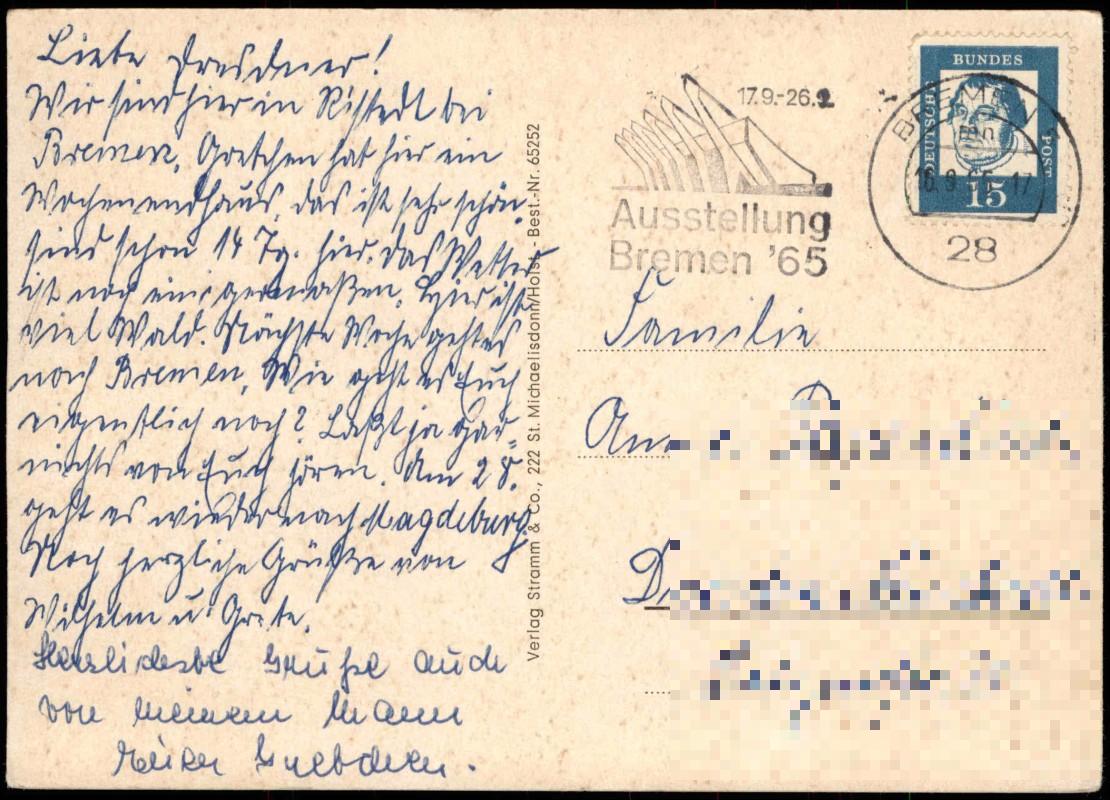 Liebe Dresdner!
Wir sind hier in Ristedt bei
Bremen, Gretchen hat hier ein
Wochenendhaus, das ist sehr schön.
sind schon 14 Tg. hier. das Wetter
ist noch einigermaßen. Hier ist
viel Wald. Nächste Woche geht es
nach Bremen, Wie geht es Euch
eigentlich noch? Laßt ja gar
nichts von Euch hören. Am 28.
geht es wieder nach Magdeburg.
Noch herzliche Grüße von
Wilhelm u. Grete.
Herzlichste Grüße auch
von meinem Mann
Gretchen.
Verlag Stramm & Co., 222 St. Michaelisdonn/Holst. - Best.-Nr. 65252
17.9.-26.9.
Ausstellung
Bremen '65
DEUTSCHE
BUNDES
POST
15
BREMEN
16.9.65-17
28
Familie